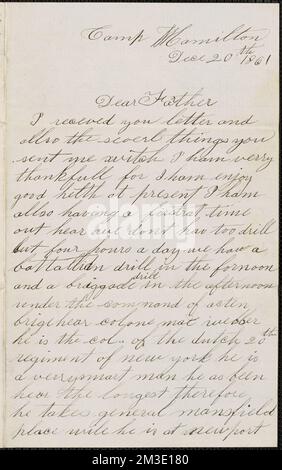 Camp Hamilton
Dece 20th 1861
Dear Father
I receved you letter and
allso the severl things you
sent me witch I ham verry
thankfull for I ham enjoy
good helth at present I ham
allso having a
time
out hear we dont hav too drill
but four hours a day we have a
battallien drill in the fornoon
and a briggade drill in the afternoon
under the command of acten
brigehear colone mac weaber
he is the col. of the dutch 20th
regiment of new york he is
a verry smart man he as been
hear the longest therefore
he takes general mansfield
place wile he is at newport
alamy
Image ID: 2M3E180
www.alamy.com